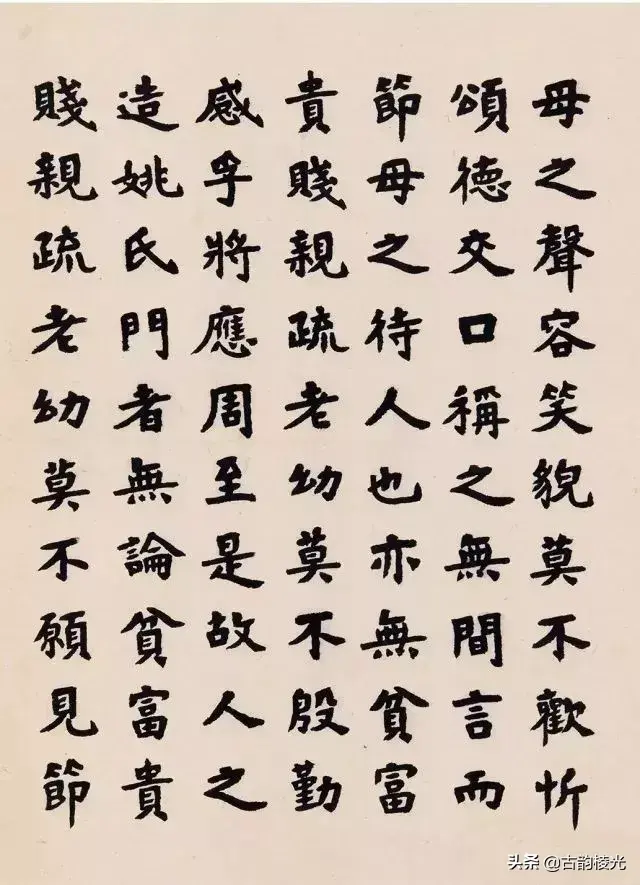 母之聲容笑貌莫不歡忻
頌德交口稱之無間言而
節母之待人也亦無貧富
貴賤親疏老幼莫不殷勤
感孚將應周至是故人之
造姚氏門者無論貧富貴
賤親疏老幼莫不願見節
头条 @古韵棱光